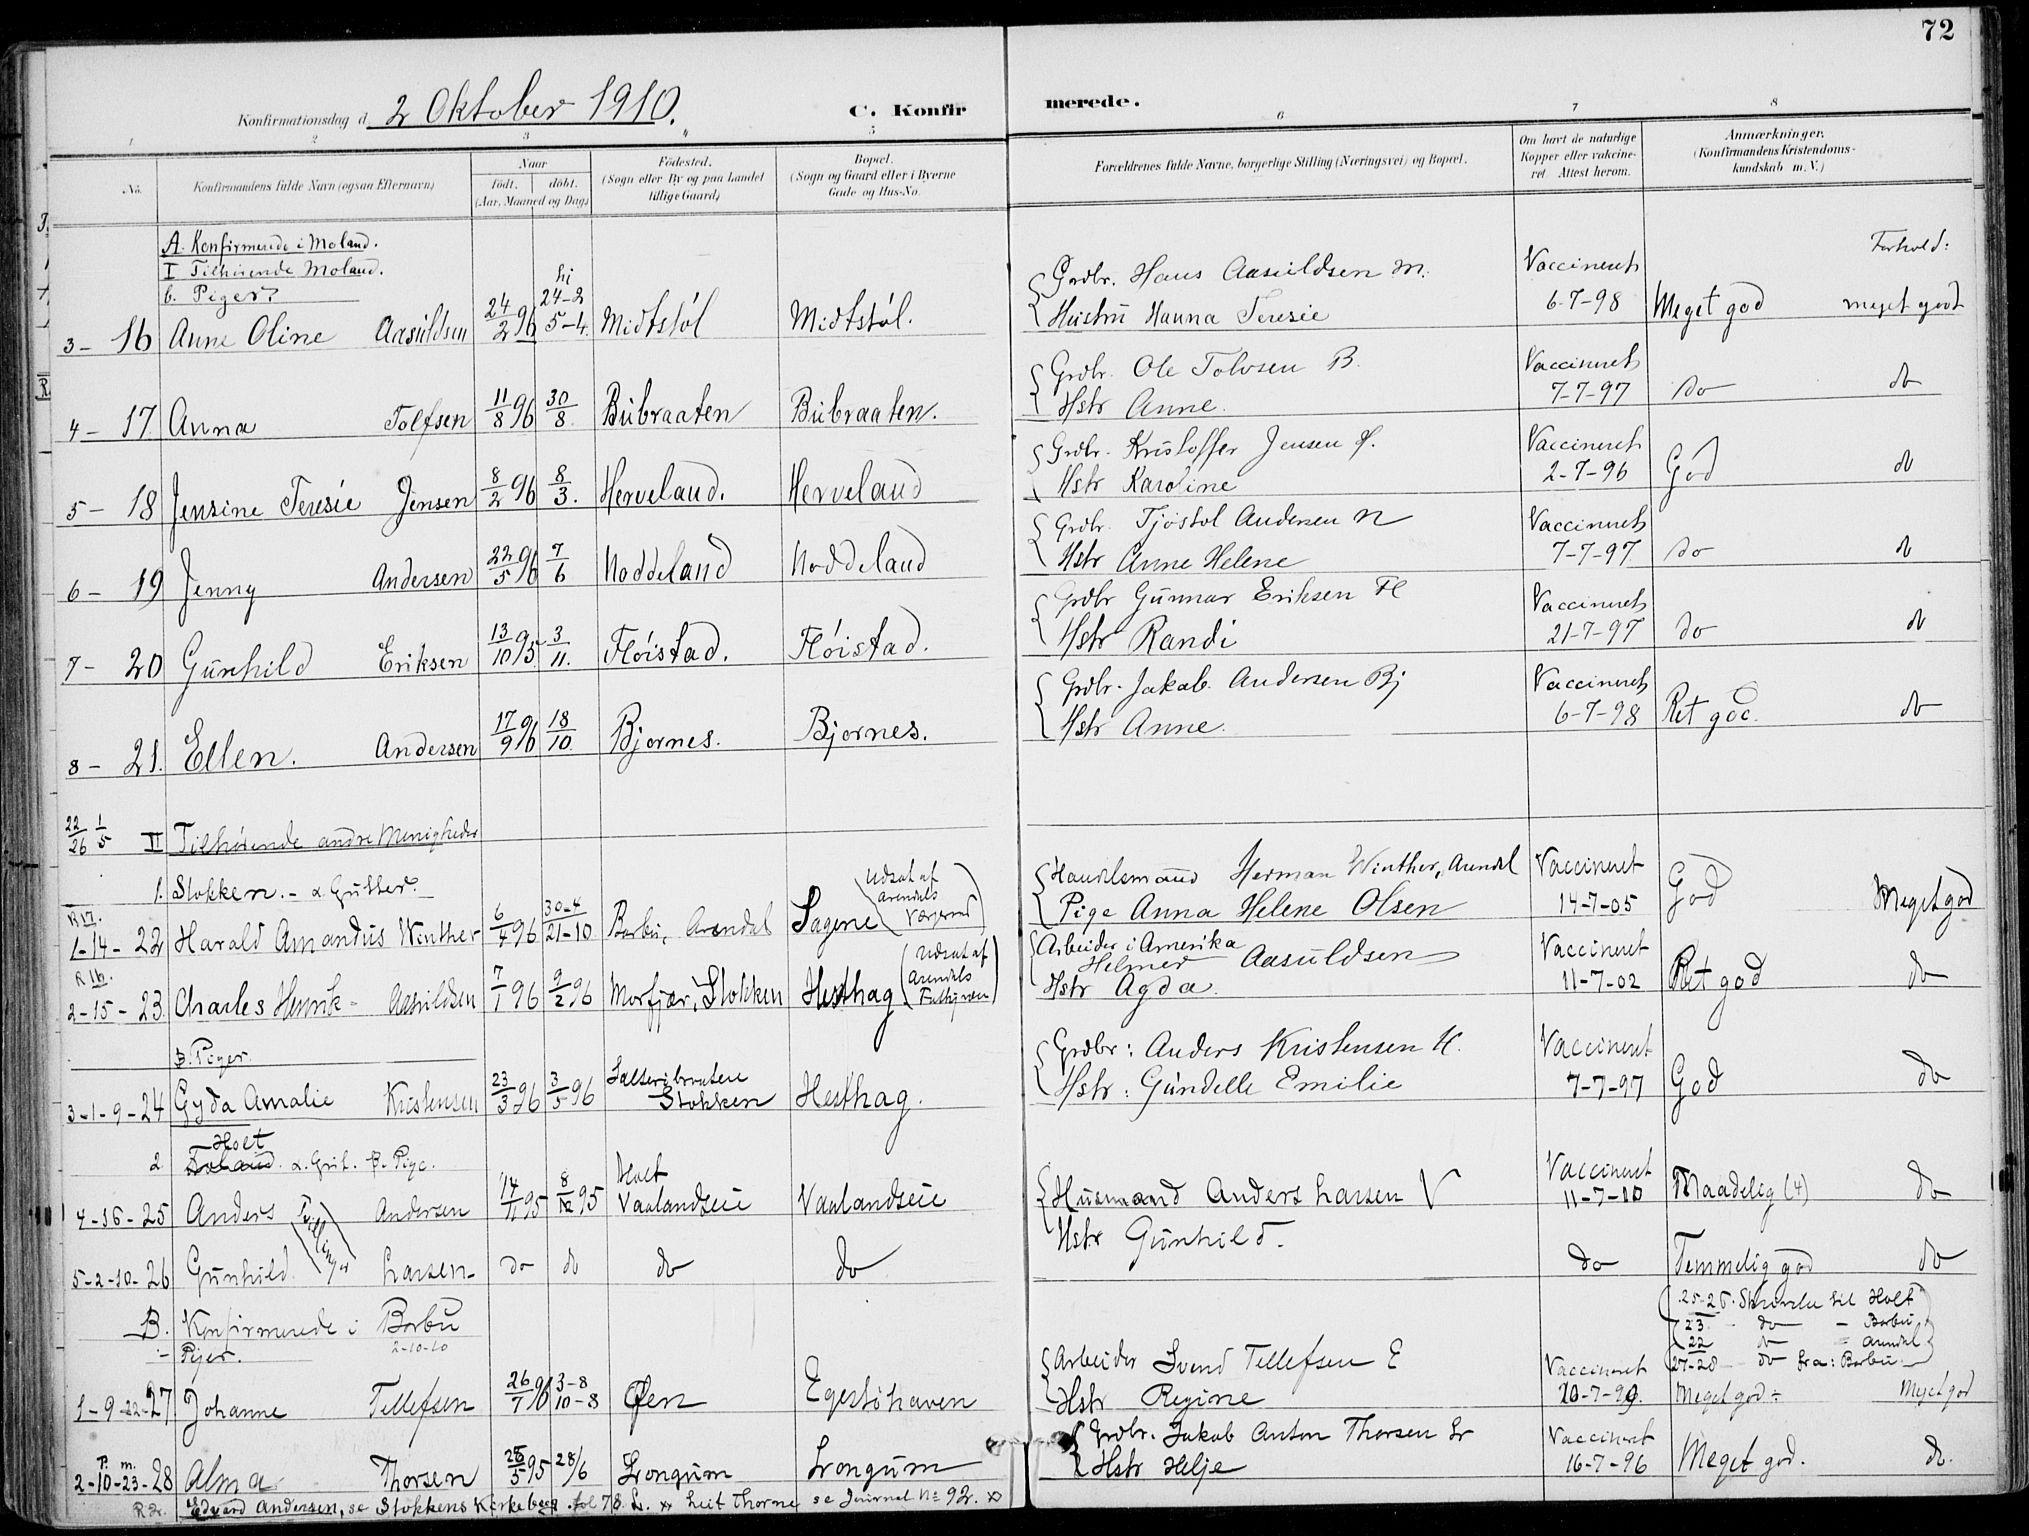 72
Konfirmationsdag d. 2 Oktober 1910.
C. Konfirmerede.
1 2 3 4 5 6 7 8
No. Konfirmandens fulde Navn (ogsaa Efternavn)
Naar født. døbt. (Aar, Maaned og Dag.)
Fødested. (Sogn eller By og paa Landet tillige Gaard)
Bopæl. (Sogn og Gaard eller i Byerne Gade og Hus-No.
Forældrenes fulde Navne, borgerlige Stilling (Næringsvei) og Bopæl.
Om havt de naturlige Kopper eller vakcineret. Attest herom.
Anmærkninger. (Konfirmandens Kristendomskundskab m. V.)
A. Konfirmerede i Moland.
I Tilhørende Moland.
b. Piger.
Forhold:
3 - 16 Anne Oline Aasuldsen 24/2 96 hj 24-2 5-4. Midtstøl Midtstøl. Grdbr. Hans Aasuldsen M. Hustru Hanna Teresie Vaccineret 6-7-98 Meget god meget godt
4 - 17 Anna Tolfsen 11/8 96 30/8 Bubraaten Bubraaten. Grdbr. Ole Tolvsen B. Hstr Anne. Vaccineret 7-7-97 do do
5 - 18 Jensine Teresie Jensen 8/2 96 8/3. Herveland. Herveland Grdbr. Kristoffer Jensen H. Hstr Karoline Vaccineret 2-7-96 God do
6 - 19 Jenny Andersen 22/5 96 7/6 Noddeland Noddeland Grdbr. Tjøstol Andersen N Hstr Anne Helene Vaccineret 7-7-97 do do
7 - 20 Gunhild Eriksen 13/10 95 3/11. Fløistad. Fløistad. Grdbr Gunnar Eriksen Fl Hstr Randi Vaccineret 21-7-97 do do
8 - 21. Ellen. Andersen 17/9 96 18/10. Bjornes. Bjornes. Grdbr. Jakob Andersen Bj Hstr Anne. Vaccineret 6-7-98 Ret god. do
22/26 1/5 II Tilhørende andre Menigheder
1. Stokken. - α Gutter.
R 17. 1-14-22 Harald Amandus Winther 6/4 96 30-4 21-10 Barbu, Arendal Sagene (Udsat af Arendals Værgeraad) Handelsmand Herman Winther, Arendal Pige Anna Helene Olsen Vaccineret 14-7-05 God Meget god
R 16. 2-15-23. Charles Henrik - Aasuldsen 7/1 96 9/2 96 Morfjær, Stokken Hesthag (Udsat af Arendals Fattigvæsen) Arbeider i Amerika Helmer Aasuldsen Hstr Agda. Vaccineret 11-7-02 Ret god do
β. Piger.
3-1-9-24 Gyda Amalie Kristensen 23/3 96 3/5 96 Stokken Hesthag. Grdbr: Anders Kristensen H. Hstr: Gundelle Emilie Vaccineret 7-7-97 God do
2 Holt α. Gut. β. Pige.
4-16-25 Anders (Tvillinger) Andersen 14/11 95 8/12 95 Holt Vaalandseie Vaalandseie Husmand Anders Larsen V Hstr Gunhild. Vaccineret 11-7-10 Maadelig (4) do
5-2-10-26 Gunhild Larsen - do do do do do Temmelig god do
B. Konfirmerede i Barbu 2-10-10
Piger.
25-26. Skrivelse til Holt
23 do - Barbu
22 do - Arendal
27-28 do fra: Barbu
1-9-22-27 Johanne Tellefsen 26/7 96 3-8 10-8 Øen Egestøhaven Arbeider Svend Tellefsen E Hstr Regine Vaccineret 20-7-99. Meget god - Meget god
2-10-23-28 Alma Thorsen 25/5 95 28/6 Longum Longum Grdbr. Jakob Anton Thorsen Lr Hstr Helje Vaccineret 16-7-96 Meget god. do.
Edvard Andersen, se Stokkens Kirkebog fol 78. se Journal No 92.